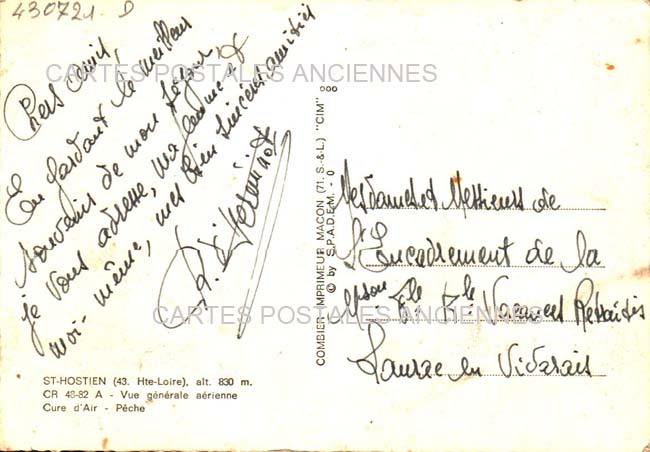 430721. D
Chers amis,
En gardant le meilleur
souvenir de mon séjour,
je vous adresse, ma femme et
moi-même, mes bien sincères amitiés
CARTES POSTALES ANCIENNES
CARTES POSTALES ANCIENNES
ST-HOSTIEN (43. Hte-Loire), alt. 830 m.
CR 48-82 A - Vue générale aérienne
Cure d'Air - Pêche
COMBIER IMPRIMEUR MACON (71. S.-&-L.) "CIM"
© by S.P.A.D.E.M. - 0
Mesdames et Messieurs de
l'Encadrement de la
Vacances Retraités
Lanarce en Vivarais